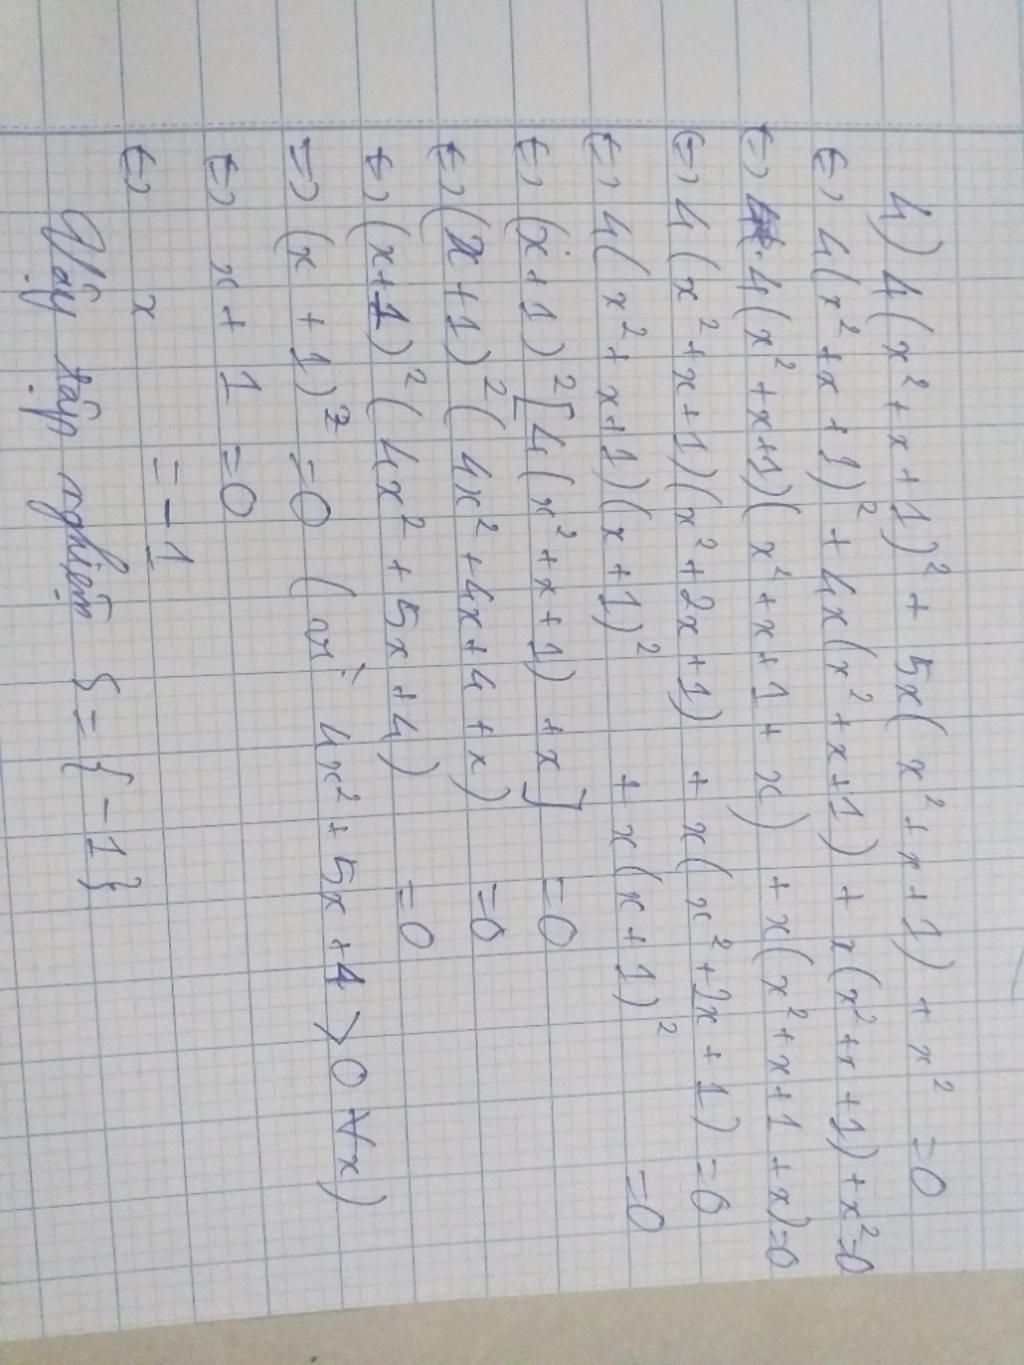 4) 4(x² + x + 1)² + 5x(x² + x + 1) + x² = 0
⇔ 4(x² + x + 1)² + 4x(x² + x + 1) + x(x² + x + 1) + x² = 0
⇔ 4(x² + x + 1)(x² + x + 1 + x) + x(x² + x + 1 + x) = 0
⇔ 4(x² + x + 1)(x² + 2x + 1) + x(x² + 2x + 1) = 0
⇔ 4(x² + x + 1)(x + 1)² + x(x + 1)² = 0
⇔ (x + 1)² [4(x² + x + 1) + x] = 0
⇔ (x + 1)² (4x² + 4x + 4 + x) = 0
⇔ (x + 1)² (4x² + 5x + 4) = 0
=> (x + 1)² = 0 (vì 4x² + 5x + 4 > 0 ∀x)
⇔ x + 1 = 0
⇔ x = -1
Vậy tập nghiệm S = {-1}